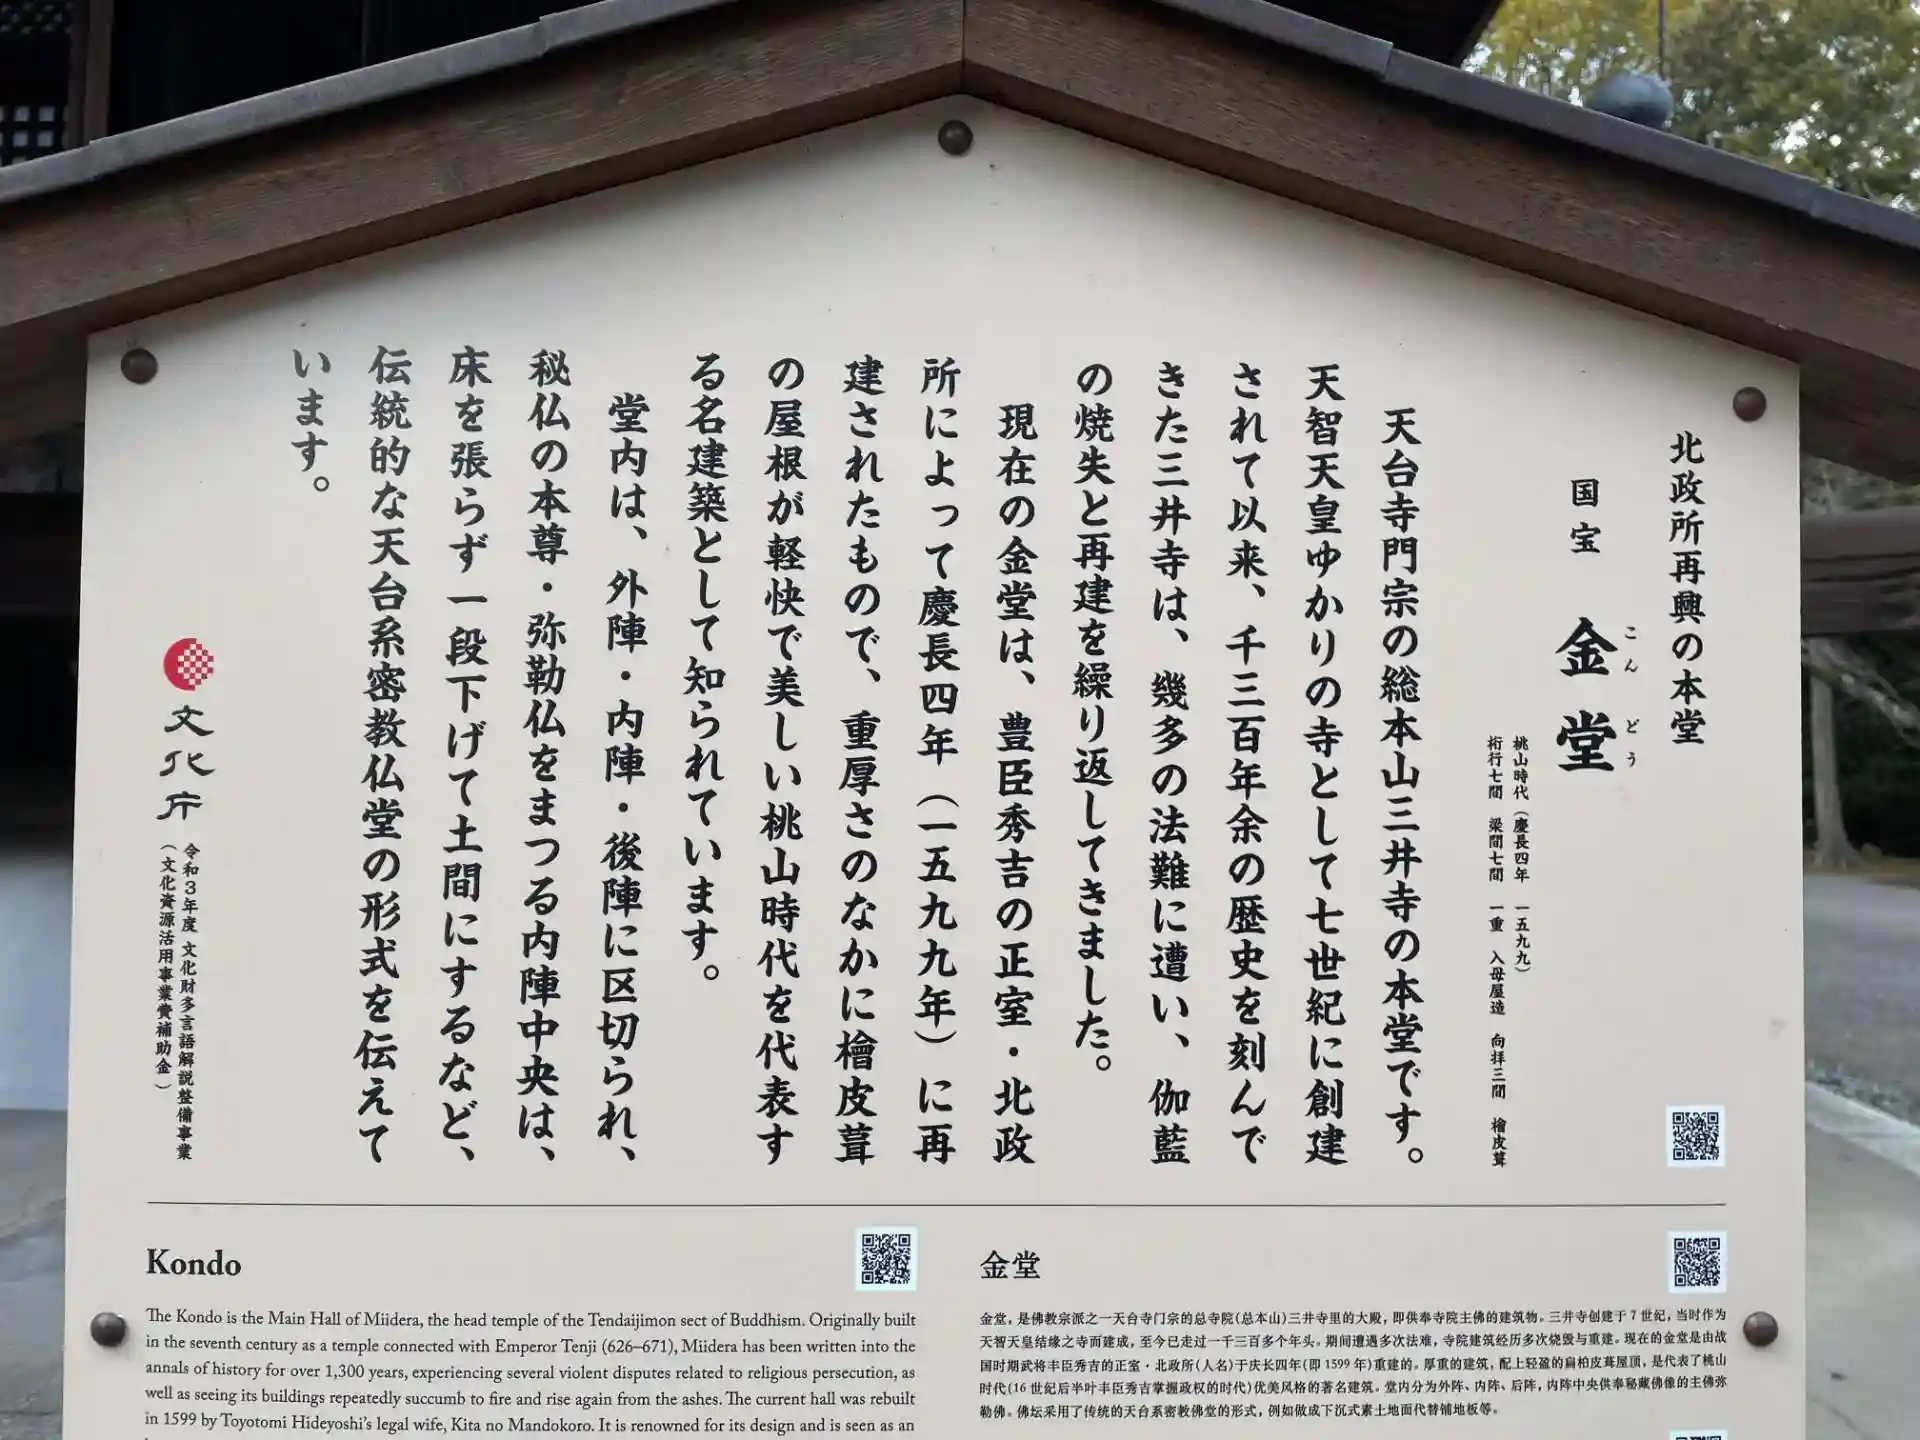 北政所再興の本堂
国宝 金堂
こんどう
桃山時代(慶長四年 一五九九)
桁行七間 梁間七間 一重 入母屋造 向拝三間 檜皮葺
天台寺門宗の総本山三井寺の本堂です。
天智天皇ゆかりの寺として七世紀に創建
されて以来、千三百年余の歴史を刻んで
きた三井寺は、幾多の法難に遭い、伽藍
の焼失と再建を繰り返してきました。
現在の金堂は、豊臣秀吉の正室・北政
所によって慶長四年(一五九九年)に再
建されたもので、重厚さのなかに檜皮葺
の屋根が軽快で美しい桃山時代を代表す
る名建築として知られています。
堂内は、外陣・内陣・後陣に区切られ、
秘仏の本尊・弥勒仏をまつる内陣中央は、
床を張らず一段下げて土間にするなど、
伝統的な天台系密教仏堂の形式を伝えて
います。
文化庁
令和3年度 文化財多言語解説整備事業
(文化資源活用事業費補助金)
Kondo
The Kondo is the Main Hall of Miidera, the head temple of the Tendaijimon sect of Buddhism. Originally built
in the seventh century as a temple connected with Emperor Tenji (626–671), Miidera has been written into the
annals of history for over 1,300 years, experiencing several violent disputes related to religious persecution, as
well as seeing its buildings repeatedly succumb to fire and rise again from the ashes. The current hall was rebuilt
in 1599 by Toyotomi Hideyoshi's legal wife, Kita no Mandokoro. It is renowned for its design and is seen as an
金堂
金堂，是佛教宗派之一天台寺门宗的总寺院(总本山)三井寺里的大殿，即供奉寺院主佛的建筑物。三井寺创建于7世纪，当时作为
天智天皇结缘之寺而建成，至今已走过一千三百多个年头。期间遭遇多次法难，寺院建筑经历多次烧毁与重建。现在的金堂是由战
国时期武将丰臣秀吉的正室・北政所(人名)于庆长四年(即1599年)重建的。厚重的建筑，配上轻盈的扁柏皮葺屋顶，是代表了桃山
时代(16世纪后半叶丰臣秀吉掌握政权的时代)优美风格的著名建筑。堂内分为外阵、内阵、后阵，内阵中央供奉秘藏佛像的主佛弥
勒佛。佛坛采用了传统的天台系密教佛堂的形式，例如做成下沉式素土地面代替铺地板等。